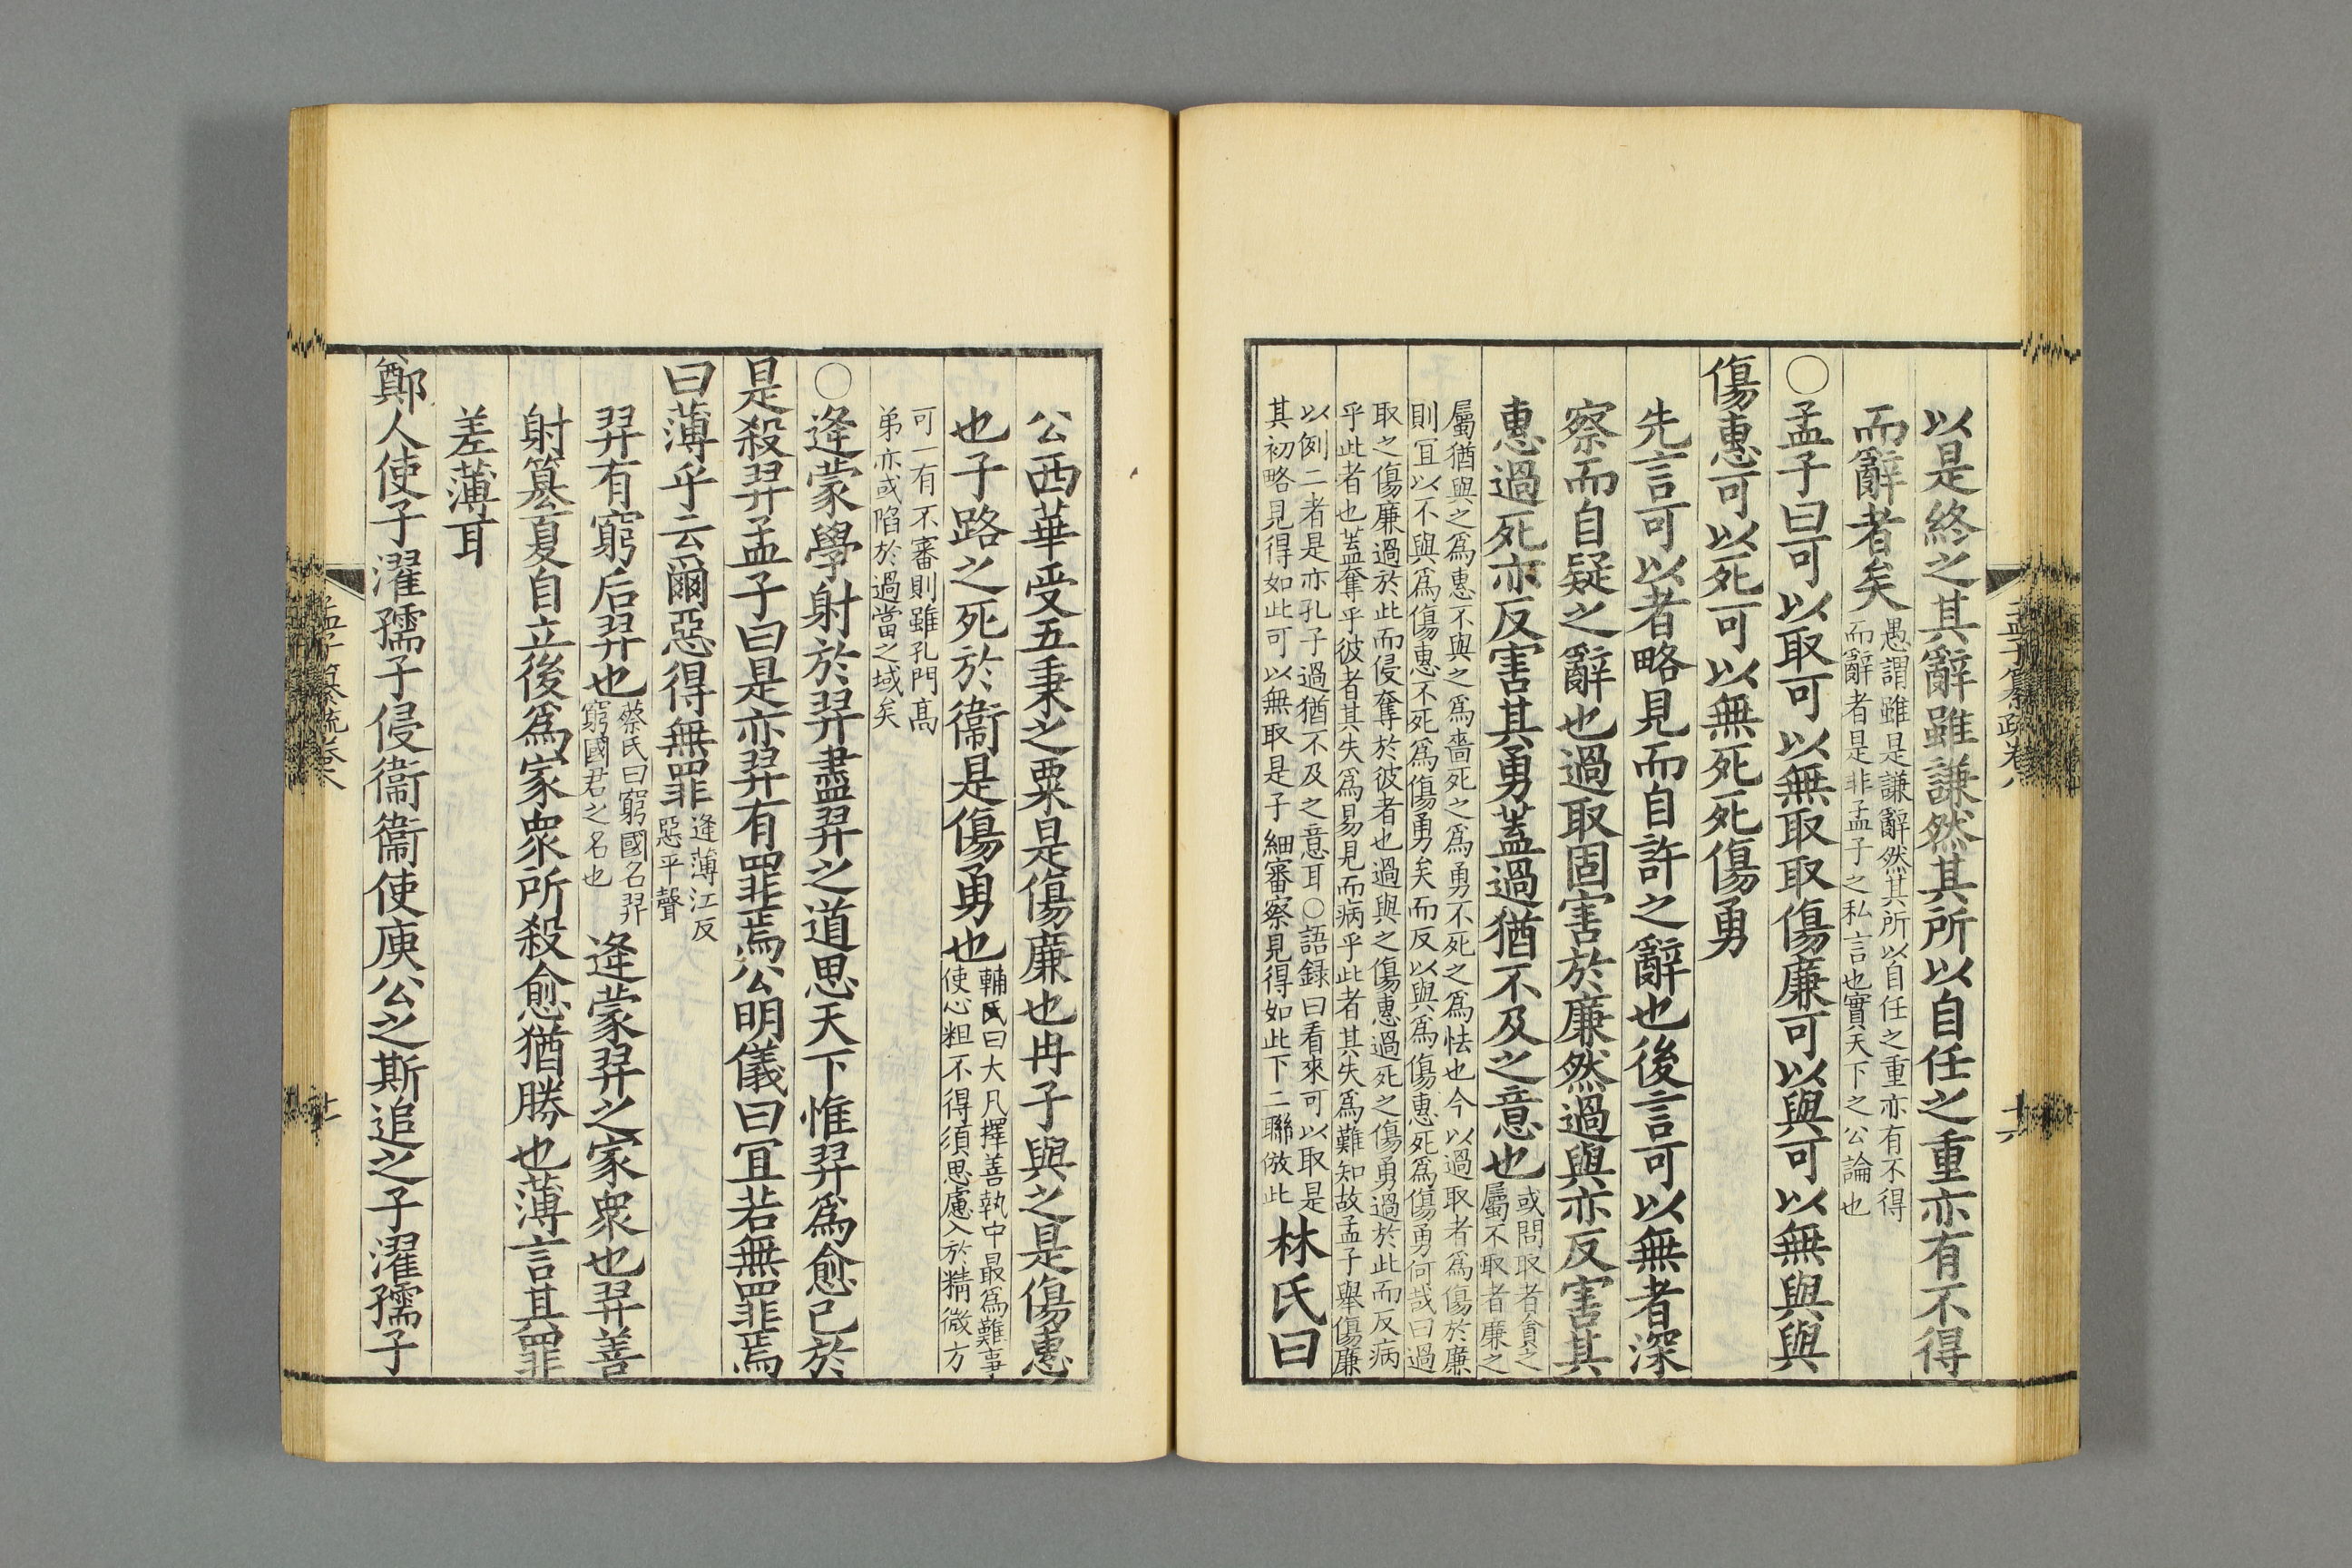 以是終之其辭雖謙然其所以自任之重亦有不得
而辭者矣
愚謂雖是謙辭然其所以自任之重亦有不得
而辭者是非孟子之私言也實天下之公論也
○孟子曰可以取可以無取取傷廉可以與可以無與與
傷惠可以死可以無死死傷勇
先言可以者略見而自許之辭也後言可以無者深
察而自疑之辭也過取固害於廉然過與亦反害其
惠過死亦反害其勇蓋過猶不及之意也
或問取者貪之
屬不取者廉之
屬猶與之爲惠不與之爲嗇死之爲勇不死之爲怯也今以過取者爲傷於廉
則宜以不與爲傷惠不死爲傷勇矣而反以與爲傷惠死爲傷勇何哉曰過
取之傷廉過於此而侵奪於彼者也過與之傷惠過死之傷勇過於此而反病
乎此者也蓋奪乎彼者其失爲易見而病乎此者其失爲難知故孟子舉傷廉
以例二者是亦孔子過猶不及之意耳○語録曰看來可以取是
其初略見得如此可以無取是子細審察見得如此下二聯倣此
林氏曰
孟子纂疏卷八
公西華受五秉之粟是傷廉也冉子與之是傷惠
也子路之死於衞是傷勇也
輔氏曰大凡擇善執中最爲難事
使心粗不得須思慮入於精微方
可一有不審則雖孔門髙
弟亦或陷於過當之域矣
○逄蒙學射於羿盡羿之道思天下惟羿爲愈己於
是殺羿孟子曰是亦羿有罪焉公明儀曰宜若無罪焉
曰薄乎云爾惡得無罪
逄薄江反
惡平聲
羿有窮后羿也
蔡氏曰窮國名羿
窮國君之名也
逄蒙羿之家衆也羿善
射簒夏自立後爲家衆所殺愈猶勝也薄言其罪
差薄耳
鄭人使子濯孺子侵衞衞使庾公之斯追之子濯孺子
孟子纂疏卷八